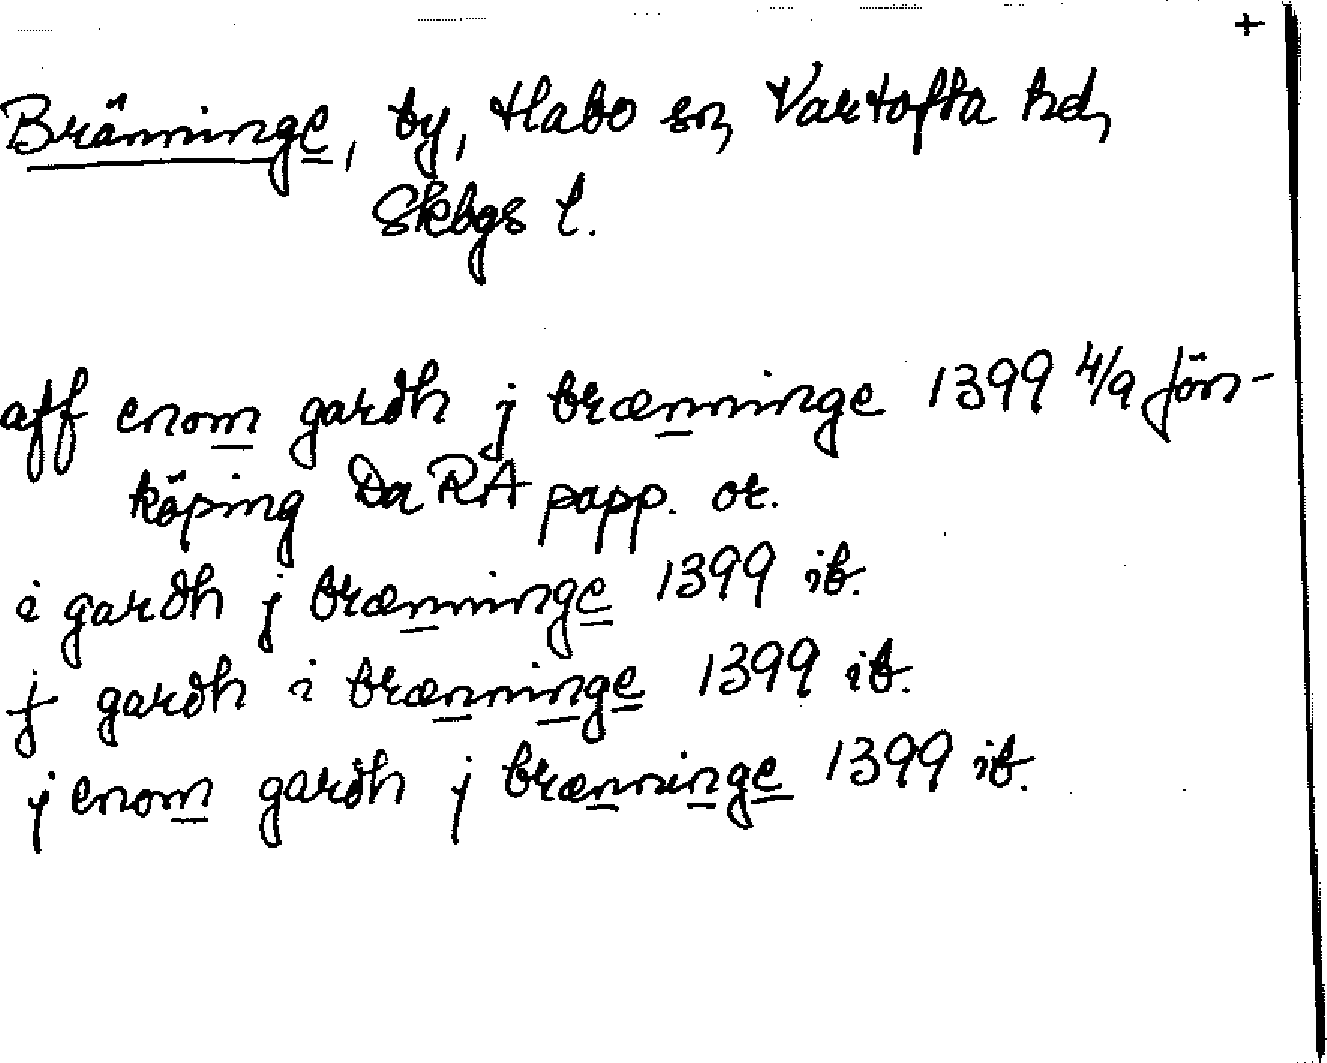 +
Bränninge, by, Habo sn, Vartofta hd,
Skbgs l.
aff enom gardh j brænninge 1399 4/9 Jön-
köping Da RA papp. or.
i gardh j brænninge 1399 ib.
j gardh i brænninge 1399 ib.
j enom gardh j brænninge 1399 ib.